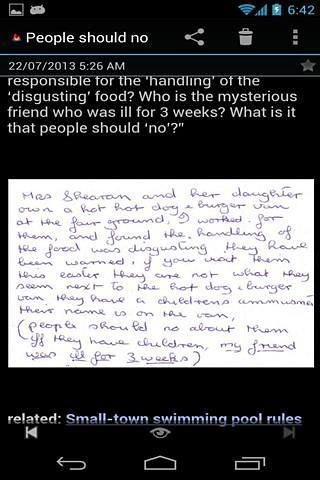 6:42
People should no
22/07/2013 5:26 AM
responsible for the 'handling' of the
'disgusting' food? Who is the mysterious
friend who was ill for 3 weeks? What is it
that people should 'no'?”
Mrs Shearan and her daughter
own a hot hot dog & burger van
at the fair ground, I worked for
them, and found the handling of
the food was disgusting they have
been warned, if you want them
this easter they are not what they
seem next to the hot dog & burger
van they have a childrens ammusme
their name is on the van,
(people should no about them
iff they have children, my friend
was ill for 3 weeks)
related: Small-town swimming pool rules